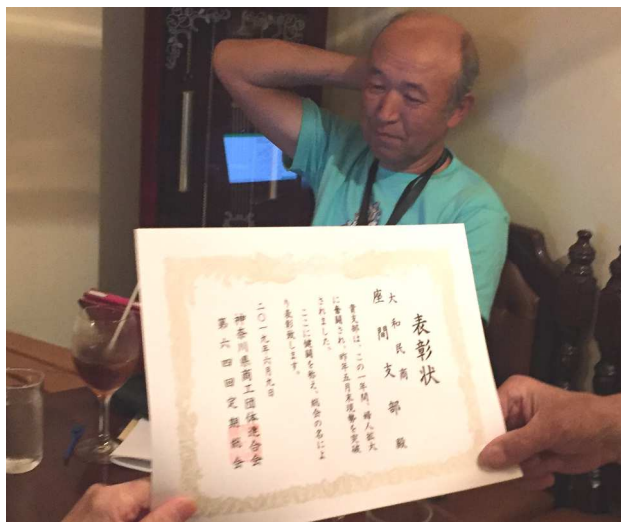 表彰状
大和民商
座間支部 殿
貴支部は、この一年間、婦人拡大
に奮闘され、昨年五月末現勢を突破
されました。
ここに健闘を称え、総会の名によ
り表彰致します。
二〇一九年六月九日
神奈川県商工団体連合会
第六四回定期総会